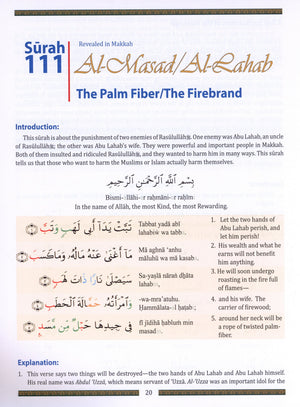 Sūrah
111
Revealed in Makkah
Al-Masad/Al-Lahab
The Palm Fiber/The Firebrand
Introduction:
This sūrah is about the punishment of two enemies of Rasūlullāh(S). One enemy was Abu Lahab, an uncle
of Rasūlullāh(S); the other was Abu Lahab's wife. They were powerful and important people in Makkah.
Both of them insulted and ridiculed Rasūlullāh(S), and they wanted to harm him in many ways. This sūrah
tells us that those who want to harm the Muslims or Islam actually harm themselves.
بِسْمِ اللَّهِ الرَّحْمَٰنِ الرَّحِيمِ
Bi-smi-llāhi-r raḥmāni-r raḥīm
In the name of Allāh, the most Kind, the most Rewarding.
تَبَّتْ يَدَا أَبِي لَهَبٍ وَتَبَّ
Tabbat yadā abī
lahabiw wa tabb
1. Let the two hands of
Abu Lahab perish, and
let him perish!
مَا أَغْنَىٰ عَنْهُ مَالُهُ وَمَا كَسَبَ
Mā aghnā 'anhu
māluhū wa mā kasab
2. His wealth and what he
earns will not benefit
him anything.
سَيَصْلَىٰ نَارًا ذَاتَ لَهَبٍ
Sa-yaṣlā nāran dhāta
lahab
3. He will soon undergo
roasting in the fire full
of flames—
وَامْرَأَتُهُ حَمَّالَةَ الْحَطَبِ
-wa-mra'atuhu.
Ḥammālata-l ḥaṭab
4. and his wife. The
carrier of firewood;
فِي جِيدِهَا حَبْلٌ مِنْ مَسَدٍ
fī jīdihā ḥablum mim
masad
5. around her neck will be
a rope of twisted palm-
fiber.
Explanation:
1. This verse says two things will be destroyed—the two hands of Abu Lahab and Abu Lahab himself.
His real name was Abdul 'Uzzā, which means servant of 'Uzzā. Al-'Uzza was an important idol for the
20